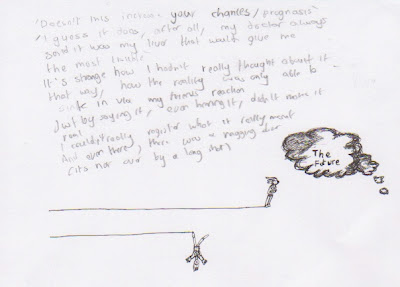 'Doesn't this increase your chances/prognosis'
'I guess it does, after all, my doctor always
said it was my liver that would give me
the most
It's strange how I hadn't really thought about it
that way, how the reality was only able to
sink in via my friends reaction
Just by saying it, even hearing it, didn't make it
real
I couldn't really register what it really meant
And even there, there was a nagging fear
(its not over by a long shot)
The
Future